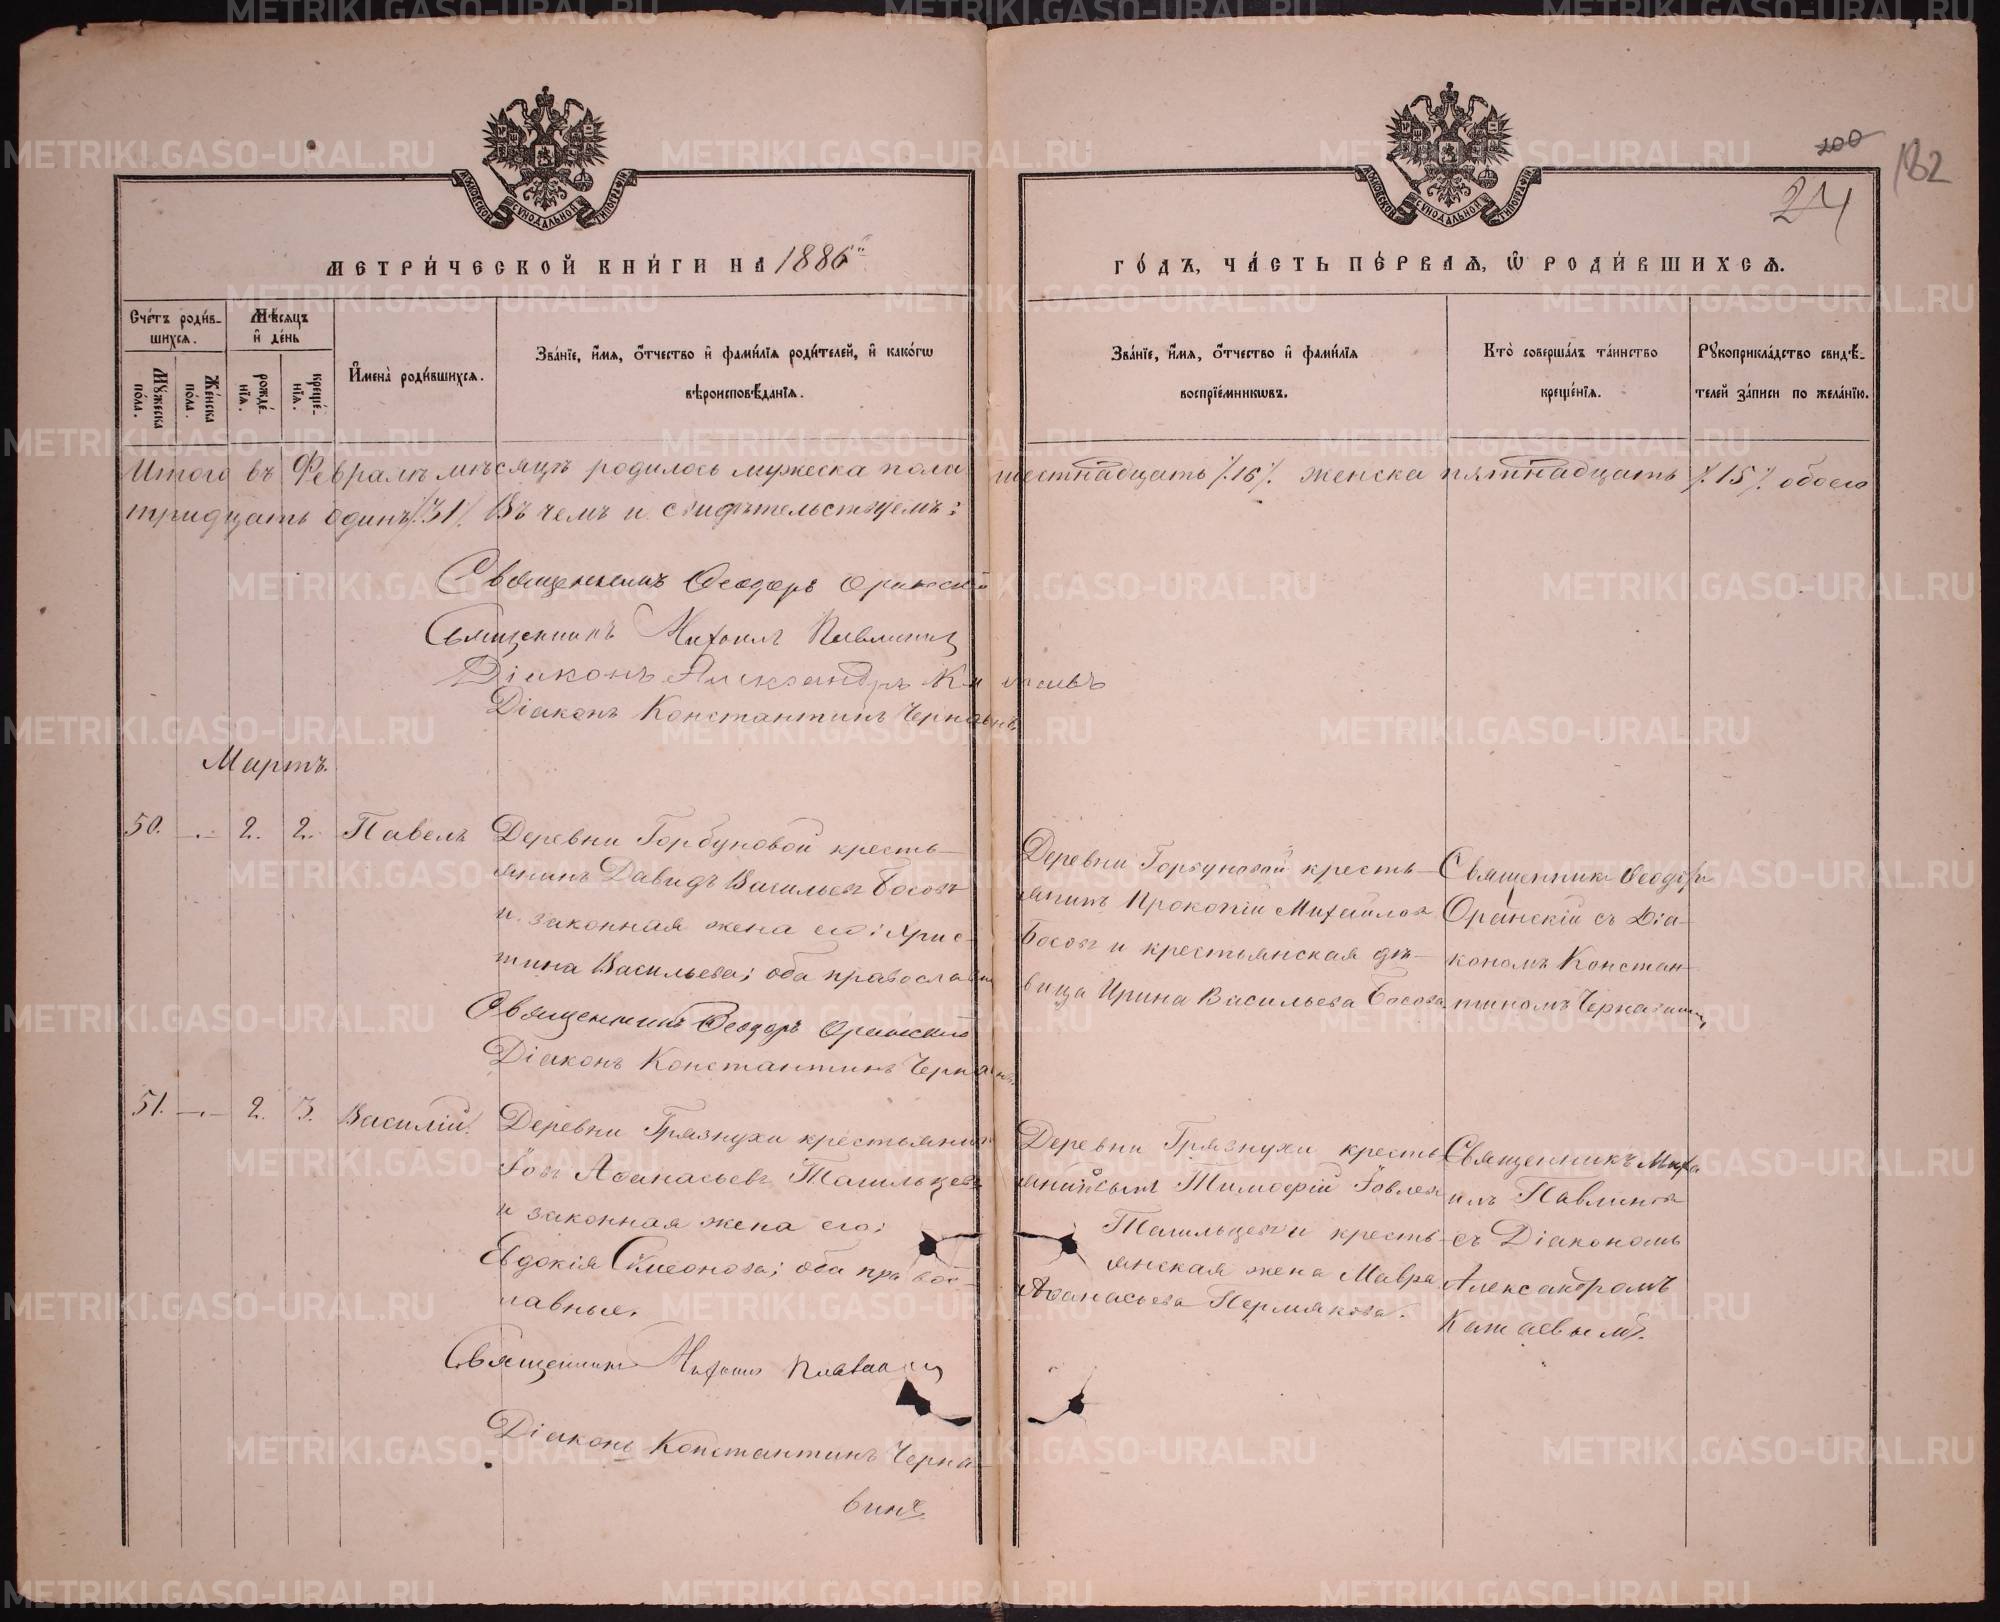 200
182
24
МОСКОВСКОЙ СѴНОДАЛЬНОЙ ТИПОГРАФІИ
МОСКОВСКОЙ СѴНОДАЛЬНОЙ ТИПОГРАФІИ
МЕТРИ́ЧЕСКОЙ КНИ́ГИ НА 1886й
ГО́ДЪ, ЧА́СТЬ ПЕ́РВАЯ, Ѽ РОДИ́ВШИХСЯ.
Сче́тъ роди́в-
шихся.
Мѣ́сяцъ
и҆ де́нь
Мꙋ́жеска
по́ла.
Же́нска
по́ла.
рожде́-
нїя.
креще́-
нїя.
И҆мена̀ роди́вшихся.
Зва́нїе, и҆́мя, ѻ҆́тчество и҆ фами́лїя роди́телей, и҆ како́гѡ
вѣроисповѣ́данїя.
Зва́нїе, и҆́мя, ѻ҆́тчество и҆ фами́лїя
воспрїе́мникѡвъ.
Кто̀ соверша́лъ та́инство
креще́нїя.
Рꙋкоприкла́дство свидѣ́-
телей за́писи по жела́нїю.
Итого въ Февралѣ мѣсяцѣ родилось мужеска пола шестнадцать ⁒16⁒. женска пятнадцать ⁒15⁒ обоего
тридцать одинъ ⁒31⁒. Въ чемъ и свидѣтельствуемъ:
Священникъ Ѳеодоръ Оранскій
Священникъ Михаилъ Павлиновъ
Діаконъ Александръ Катаевъ
Діаконъ Константинъ Чернавинъ
Мартъ.
50. —.— 2. 2. Павелъ
Деревни Горбуновой кресть-
янинъ Давидъ Васильевъ Босовъ
и законная жена его: Хрис-
тина Васильева; оба православн
Священникъ Ѳеодоръ Оранскій
Діаконъ Константинъ Чернавинъ
Деревни Горбуновой кресть-
янинъ Прокопій Михайловъ
Босовъ и крестьянская дѣ-
вица Ирина Васильева Босова
Священникъ Ѳеодоръ
Оранскій съ Діа-
кономъ Констан-
тиномъ Чернавинымъ
51. —.— 2. 3. Василій.
Деревни Грязнухи крестьянинъ
Іовъ Аѳанасьевъ Тагильцевъ
и законная жена его:
Евдокія Симеонова; оба правос-
лавные.
Священникъ Михаилъ Павлиновъ
Діаконъ Константинъ Черна-
винъ.
Деревни Грязнухи кресть-
Тимоѳей Іовлевъ
Тагильцевъ и кресть-
янская жена Мавра
Аѳанасьева Пермякова.
Священникъ Миха
илъ Павлиновъ
съ Діакономъ
Александромъ
Катаевымъ.